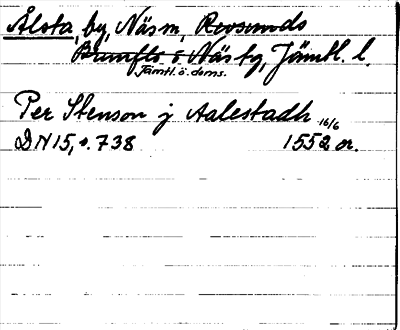 Ålsta, by, Näs sn, Revsunds
Brunflo o. Näs tg, Jämtl. l.
Jämtl. ö. doms.
Per Stenson j Aalestadh 16/6
DN 15, s. 738 1552 or.